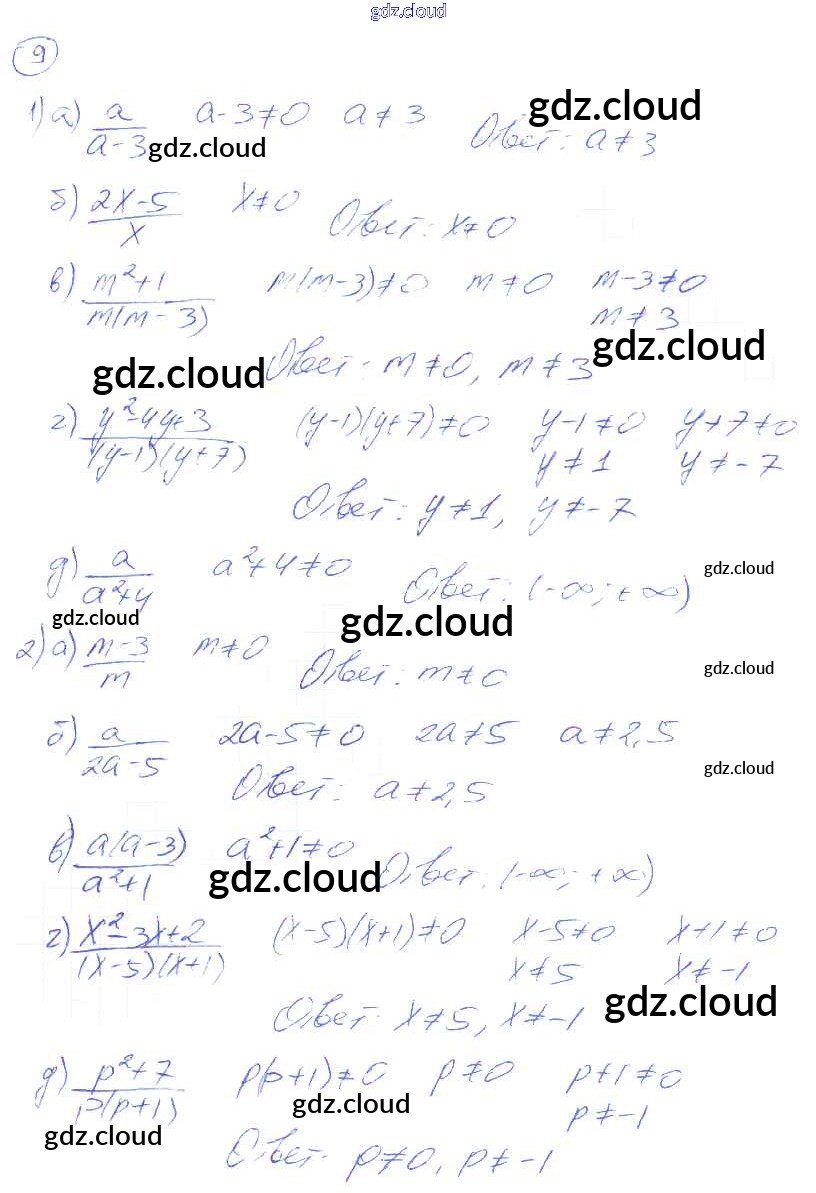 gdz.cloud
9
1) а) a/(a-3) a-3≠0 a≠3 Ответ: a≠3
gdz.cloud
gdz.cloud
б) (2x-5)/x x≠0 Ответ: x≠0
в) (m²+1)/(m(m-3)) m(m-3)≠0 m≠0 m-3≠0
m≠3
gdz.cloud
gdz.cloud
Ответ: m≠0, m≠3
г) (y²-4y+3)/((y-1)(y+7)) (y-1)(y+7)≠0 y-1≠0 y+7≠0
y≠1 y≠-7
Ответ: y≠1, y≠-7
д) a/(a²+4) a²+4≠0 Ответ: (-∞; +∞)
gdz.cloud
gdz.cloud
gdz.cloud
2) а) (m-3)/m m≠0 Ответ: m≠0
gdz.cloud
б) a/(2a-5) 2a-5≠0 2a≠5 a≠2,5
gdz.cloud
Ответ: a≠2,5
в) a(a-3)/(a²+1) a²+1≠0 Ответ: (-∞; +∞)
gdz.cloud
г) (x²-3x+2)/((x-5)(x+1)) (x-5)(x+1)≠0 x-5≠0 x+1≠0
x≠5 x≠-1
gdz.cloud
Ответ: x≠5, x≠-1
д) (p²+7)/(p(p+1)) p(p+1)≠0 p≠0 p+1≠0
p≠-1
gdz.cloud
gdz.cloud
Ответ: p≠0, p≠-1